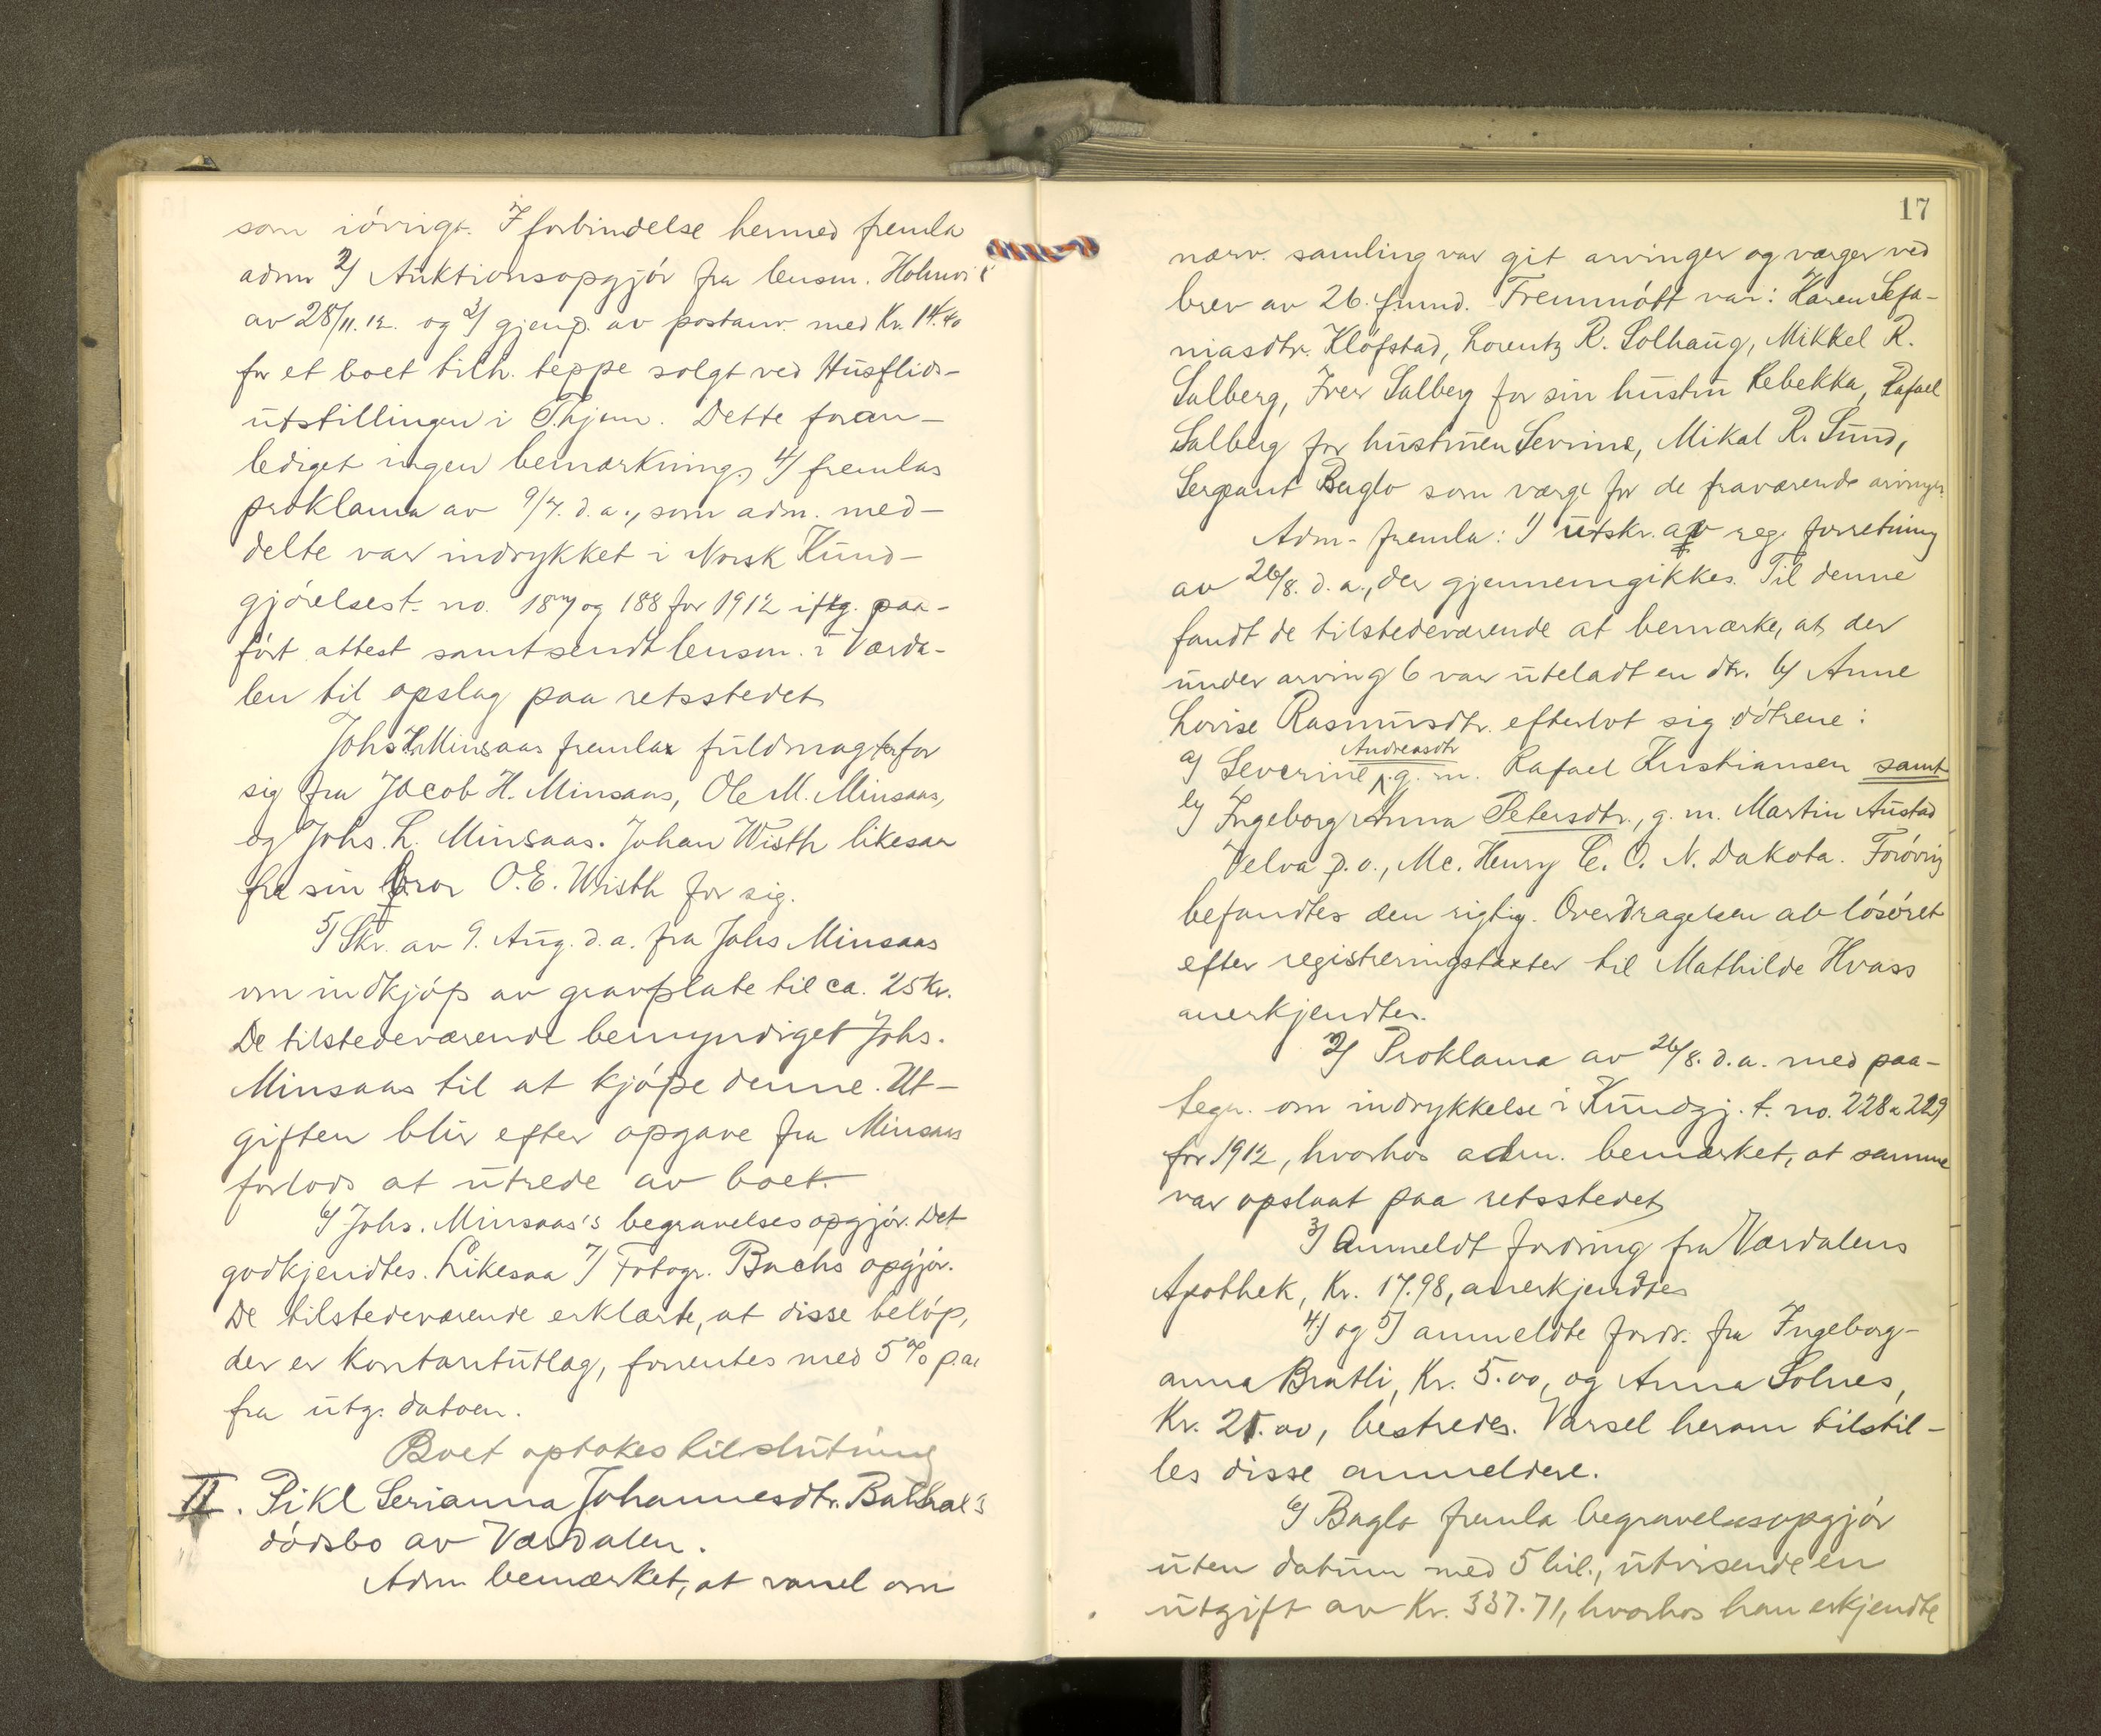 som iövrigt. I forbindelse hermed fremla
adm 2/ Auktionsopgjör fra lensm. Holmvik
av 28/11.12. og 3/ gjenp. av postanv. med Kr. 14.40
for et boet tilh. teppe solgt ved Husflids-
utstillingen i Thjem. Dette foran-
lediget ingen bemerkning, 4/ fremlas
proklama av 9/7. d.a., som adm. med-
delte var indrykket i Norsk Kund-
gjörelsest. no. 187 og 188 for 1912 iflg. paa-
fört attest samt sendt lensm. i Værda-
len til opslag paa retsstedet
Johs H. Minsaas fremla fuldmagter for
sig fra Jacob H. Minsaas, Ole M. Minsaas,
og Johs. L. Minsaas. Johan Wisth likesaa
fra sin bror O.E. Wisth for sig.
5/ Skr. av 9. Aug. d.a. fra Johs Minsaas
om indkjöp av gravplate til ca. 25 kr.
De tilstedeværende bemyndiget Johs.
Minsaas til at kjöpe denne. Ut-
giften blir efter opgave fra Minsaas
forlods at utrede av boet.
6/ Johs. Minsaas's begravelsesopgjör. Det
godkjendtes. Likesaa 7/ Fotogr. Bachs opgjör.
De tilstedeværende erklærte, at disse belöp,
der er kontantutlæg, forrentes med 5% p.a.
fra utg. datoen.
Boet optokes til slutning
II. Pike Serianna Johannesdtr. Balhal's
dödsbo av Værdalen.
Adm bemærket, at varsel om
17
nærv. samling var git arvinger og værger ved
brev av 26. f.mnd. Fremmött var: Karen Sefa-
niasdtr. Klöfstad, Lorentz R. Solhaug, Mikkel R.
Salberg, Iver Salberg for sin hustru Rebekka, Rafael
Salberg for hustruen Sevrine, Mikal R. Sund,
Sergeant Baglo som værge for de fraværende arvinger.
Adm. fremla: 1) utskr. av reg. forretning
av 26/8. d.a., der gjennemgikkes. Til denne
fandt de tilstedeværende at bemærke, at der
under arving 6 var uteladt en dtr. b/ Anne
Lovise Rasmusdtr. efterlot sig dötrene:
a/ Severine Andreasdtr g. m. Rafael Kristiansen samt
b/ Ingeborg Anna Petersdtr., g. m. Martin Austad
Velva p.o., Mc. Henry C. O. N. Dakota. Forövrig
befandtes den rigtig. Overdragelsen av lösöret
efter registreringstakster til Mathilde Hvass
anerkjendtes.
2/ Proklama av 26/8. d.a. med paa-
tegn. om indrykkelse i Kundgj. t. no. 228 & 229
for 1912, hvorhos adm. bemærket, at samme
var opslaat paa retsstedet
3/ Anmeldt fordring fra Værdalens
Apothek, Kr. 17.98, anerkjendtes
4/ og 5/ anmeldte fordr. fra Ingeborg-
anna Bratli, Kr. 5.00, og Anna Solnes,
Kr. 21.00, bestredes. Varsel herom tilstil-
les disse anmeldere.
6/ Baglo fremla begravelsesopgjör
uten datum med 5 bil., utvisende en
utgift av Kr. 337.71, hvorhos han erkjendte